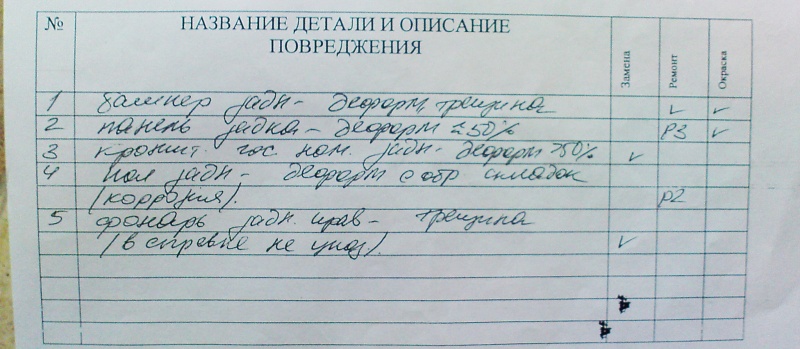 № НАЗВАНИЕ ДЕТАЛИ И ОПИСАНИЕ ПОВРЕДЖЕНИЯ Замена Ремонт Окраска
1 бампер задн - деформ, трещина v v
2 панель задка - деформ ≈50% Р3 v
3 кроншт. гос. ном. задн - деформ >50% v
4 пол задн - деформ с обр складок
(коррозия). Р2
5 фонарь задн. прав - трещина
(в справке не указ). v